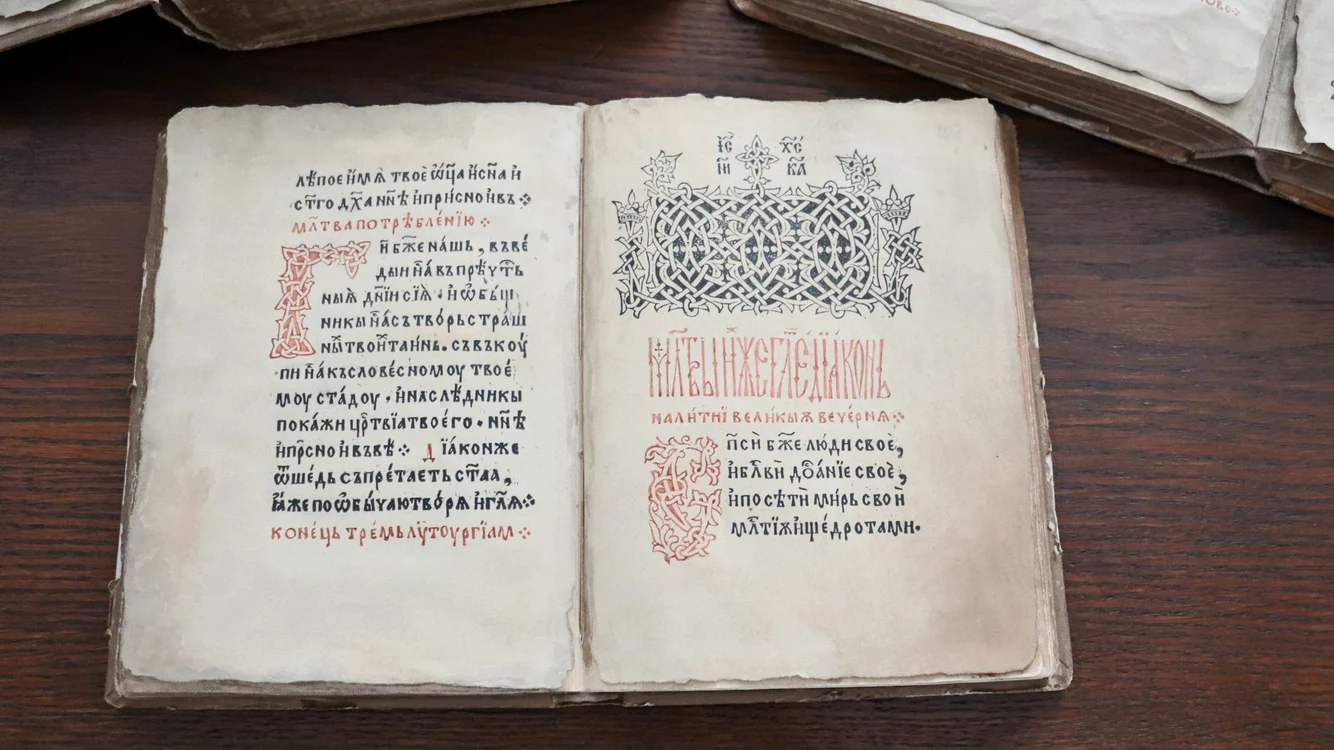 лѣпоеи҆мѧ̀ твоѐ ѿц҃а и҆ сн҃а и҆
ст҃го дх҃а нн҃ѣ и҆ приⷭ҇но и҆ въ ⁘
мл҃тва по трѣбле́нїю ⁘
Г҃и бж҃е на́шь, въве
ды и҆ на́ въ прѣчⷭ҇ть
ныѧ̀ дн҃и сїѧ̀ · и҆ ѡ҆бы́щ
никы на́съ твóрь страш
ны̑ твои́ таи́нь. съвъкоу́
пи на́ къ слове́сномоу твое́
моу ста́доу · и҆ наслѣ́дникы
пока́жи црⷭ҇твїа твоего̀ · нн҃ѣ
и҆ прⷭ҇но и҆ въ вѣ ⁘ дїа́конже
ѿше́дь съпрѣ́таеть ст҃аа,
ꙗ҆́же по ѡ҆бы́чаю твóрѧ и҆ гл҃ѧ ⁘
коне́ць тре́мь лѷтоургїам ⁘
і҃с х҃с
ни ка
мл҃твы и҆̀хже гл҃ет дїа́конь
на ли́тїи вели́кыѫ вече́рнѧ ⁘
Сп҃си бж҃е лю́ди своѐ,
и҆ блⷭ҇ви достоа́нїе своѐ,
и҆ посѣти̑ ми́рь свои̑
мл҃тїѫ и҆ ще́дротами.